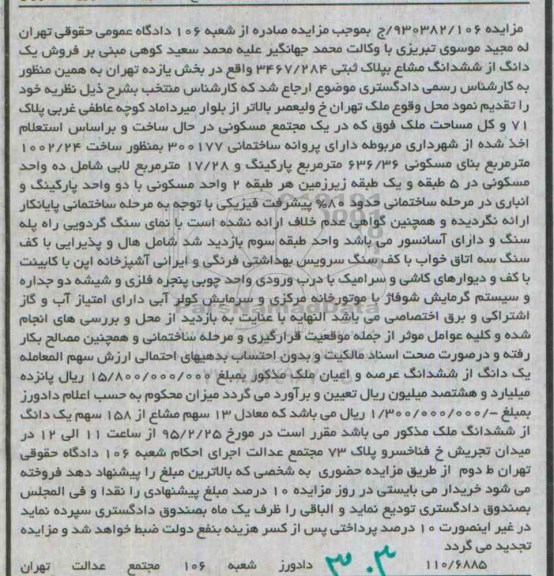 مزایده ۹۳۰۳۸۲/۱۰۶/ج بموجب مزایده صادره از شعبه ۱۰۶ دادگاه عمومی حقوقی تهران
له مجید موسوی تبریزی با وکالت محمد جهانگیر علیه محمد سعید کوهی مبنی بر فروش یک
دانگ از ششدانگ مشاع بپلاک ثبتی ۳۴۶۷/۲۸۴ واقع در بخش یازده تهران به همین منظور
به کارشناس رسمی دادگستری موضوع ارجاع شد که کارشناس منتخب بشرح ذیل نظریه خود
را تقدیم نمود محل وقوع ملک تهران خ ولیعصر بالاتر از بلوار میرداماد کوچه عاطفی غربی پلاک
۷۱ و کل مساحت ملک فوق که در یک مجتمع مسکونی در حال ساخت و براساس استعلام
اخذ شده از شهرداری مربوطه دارای پروانه ساختمانی ۳۰۰۱۷۷ بمنظور ساخت ۱۰۰۲/۲۴
مترمربع بنای مسکونی ۶۳۶/۳۶ مترمربع پارکینگ و ۱۷/۲۸ مترمربع لابی شامل ده واحد
مسکونی در ۵ طبقه و یک طبقه زیرزمین هر طبقه ۲ واحد مسکونی با دو واحد پارکینگ و
انباری در مرحله ساختمانی حدود ۸۰% پیشرفت فیزیکی با توجه به مرحله ساختمانی پایانکار
ارائه نگردیده و همچنین گواهی عدم خلاف ارائه نشده است با نمای سنگ گردویی راه پله
سنگ و دارای آسانسور می باشد واحد طبقه سوم بازدید شد شامل هال و پذیرایی با کف
سنگ سه اتاق خواب با کف سنگ سرویس بهداشتی فرنگی و ایرانی آشپزخانه اپن با کابینت
با کف و دیوارهای کاشی و سرامیک با درب ورودی واحد چوبی پنجره فلزی و شیشه دو جداره
و سیستم گرمایش شوفاژ با موتورخانه مرکزی و سرمایش کولر آبی دارای امتیاز آب و گاز
اشتراکی و برق اختصاصی می باشد النهایه با عنایت به بازدید از محل و بررسی های انجام
شده و کلیه عوامل موثر از جمله موقعیت قرارگیری و مرحله ساختمانی و همچنین مصالح بکار
رفته و درصورت صحت اسناد مالکیت و بدون احتساب بدهیهای احتمالی ارزش سهم المعامله
یک دانگ از ششدانگ عرصه و اعیان ملک مذکور بمبلغ ۱۵/۸۰۰/۰۰۰/۰۰۰ ریال پانزده
میلیارد و هشتصد میلیون ریال تعیین و برآورد می گردد میزان محکوم به حسب اعلام دادورز
بمبلغ -/۱/۳۰۰/۰۰۰/۰۰۰ ریال می باشد که معادل ۱۳ سهم مشاع از ۱۵۸ سهم یک دانگ
از ششدانگ ملک مذکور می باشد مقرر است در مورخ ۹۵/۲/۲۵ از ساعت ۱۱ الی ۱۲ در
میدان تجریش خ فناخسرو پلاک ۷۳ مجتمع عدالت اجرای احکام شعبه ۱۰۶ دادگاه حقوقی
تهران ط دوم از طریق مزایده حضوری به شخصی که بالاترین مبلغ را پیشنهاد دهد فروخته
می شود خریدار می بایستی در روز مزایده ۱۰ درصد مبلغ پیشنهادی را نقدا و فی المجلس
بصندوق دادگستری تودیع نماید و الباقی را ظرف یک ماه بصندوق دادگستری سپرده نماید
در غیر اینصورت ۱۰ درصد پرداختی پس از کسر هزینه بنفع دولت ضبط خواهد شد و مزایده
تجدید می گردد
۱۱۰/۶۸۸۵ دادورز شعبه ۱۰۶ مجتمع عدالت تهران